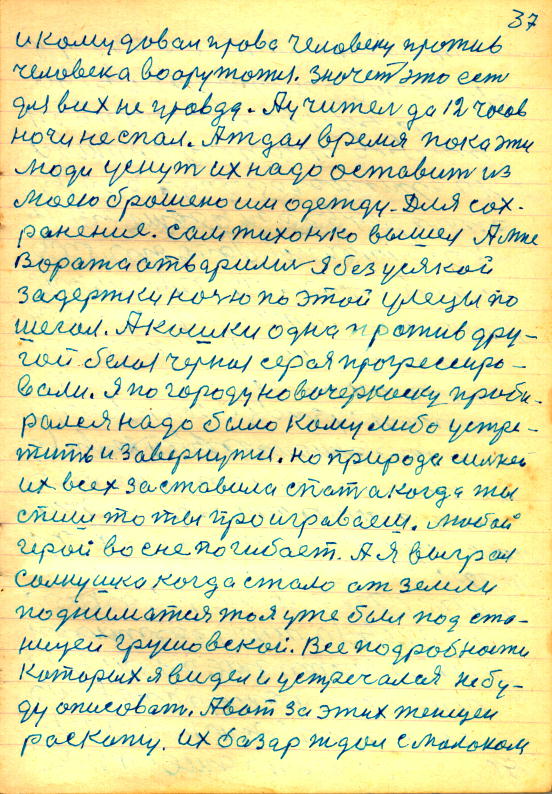 37
и кому довал права человеку против
человека вооружатся. Значет это ест
для всих не правда. А учител до 12 часов
ночи не спал. А ждал время пока эти
люди уснут их надо оставит из
моею брошеною им одежду. Для сох-
ранения. Сам тихонько вышел А мне
Вората атварили я без усякой
задержки ночю по этой улецы по
шегал. А кошки одна против дру-
гой белая черная серая прогрессиро-
вали. Я по городу новочеркаску проби-
рался надо было кому либо устре-
тить и завернути. но природа силней
их всех заставила спат а когда ты
спиш то ты проиграваеш. Любой
герой во сне погибает. А я выграл
солнушка когда стало от земли
подниматся то я уже был под ста-
ницей грушовской. Все подробности
которых я видел и устречался не бу-
ду описоват. А вот за этих женщен
раскажу. Их базар ждал с молоком